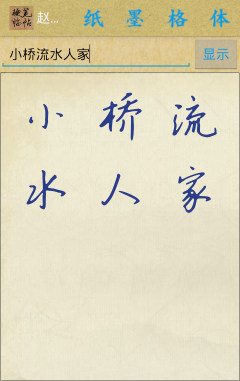 硬笔临帖 赵... 纸 墨 格 体
小桥流水人家 显示
小 桥 流
水 人 家